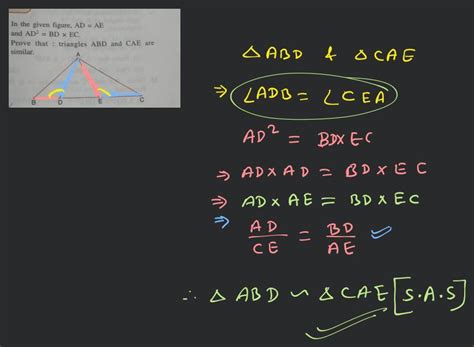 In the given figure, AD = AE
and AD² = BD × EC.
Prove that : triangles ABD and CAE are
similar.
A
B D E C
△ ABD & △ CAE
⇒ ∠ADB = ∠CEA
AD² = BD×EC
⇒ AD×AD = BD×EC
⇒ AD×AE = BD×EC
⇒ AD/CE = BD/AE ✓
∴ △ ABD ∽ △ CAE [S.A.S]